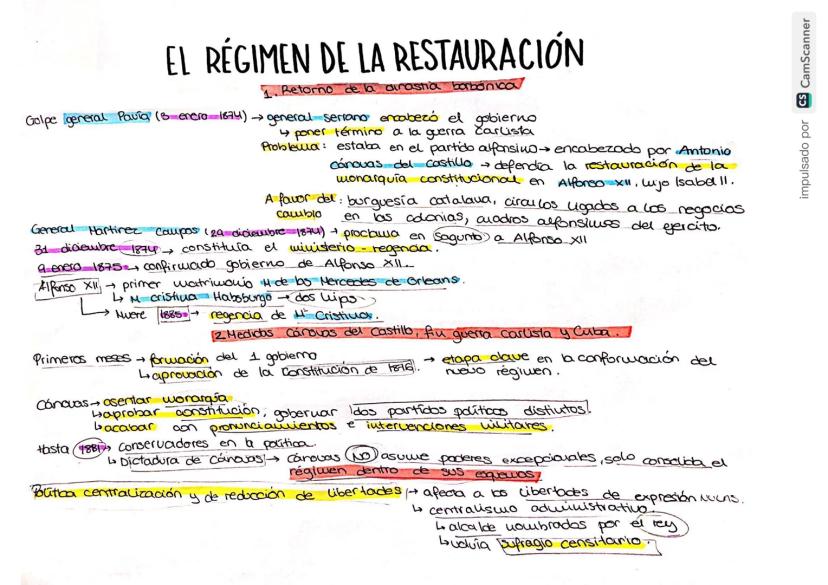 EL RÉGIMEN DE LA RESTAURACIÓN
1. Retorno de la dinastía borbónica
Golpe general Pavía (3 enero 1874) → general Serrano encabezó el gobierno
↳ poner término a la guerra carlista
Problema: estaba en el partido alfonsino → encabezado por Antonio
Cánovas del Castillo → defendía la restauración de la
monarquía constitucional en Alfonso XII, hijo Isabel II.
A favor del: burguesía catalana, círculos ligados a los negocios
cambio en las colonias, cuadros alfonsinos del ejército.
General Martínez Campos (29 diciembre 1874) → proclama en Sagunto a Alfonso XII
31 diciembre 1874 → constituía el ministerio-regencia.
9 enero 1875 → confirmado gobierno de Alfonso XII.
Alfonso XII → primer matrimonio M de las Mercedes de Orleans.
↳ M cristina Habsburgo → dos hijos
↳ Muere 1885 → regencia de Mª Cristina.
2 Medidas Cánovas del Castillo, fin guerra carlista y Cuba.
Primeros meses → formación del 1 gobierno → etapa clave en la conformación del
↳ aprovación de la Constitución de 1876. nuevo régimen.
Cánovas → asentar monarqía
↳ aprobar constitución, gobernar dos partidos políticos distintos.
↳ acabar con pronunciamientos e intervenciones militares.
Hasta 1881 → conservadores en la política.
↳ Dictadura de Cánovas → Cánovas NO asume poderes excepcionales, solo consolida el
régimen dentro de sus esquemas
Política centralización y de reducción de libertades → afecta a las libertades de expresión
↳ centralismo administrativo.
↳ alcalde nombrados por el rey
↳ volvía sufragio censitario.
impulsado por CS CamScanner